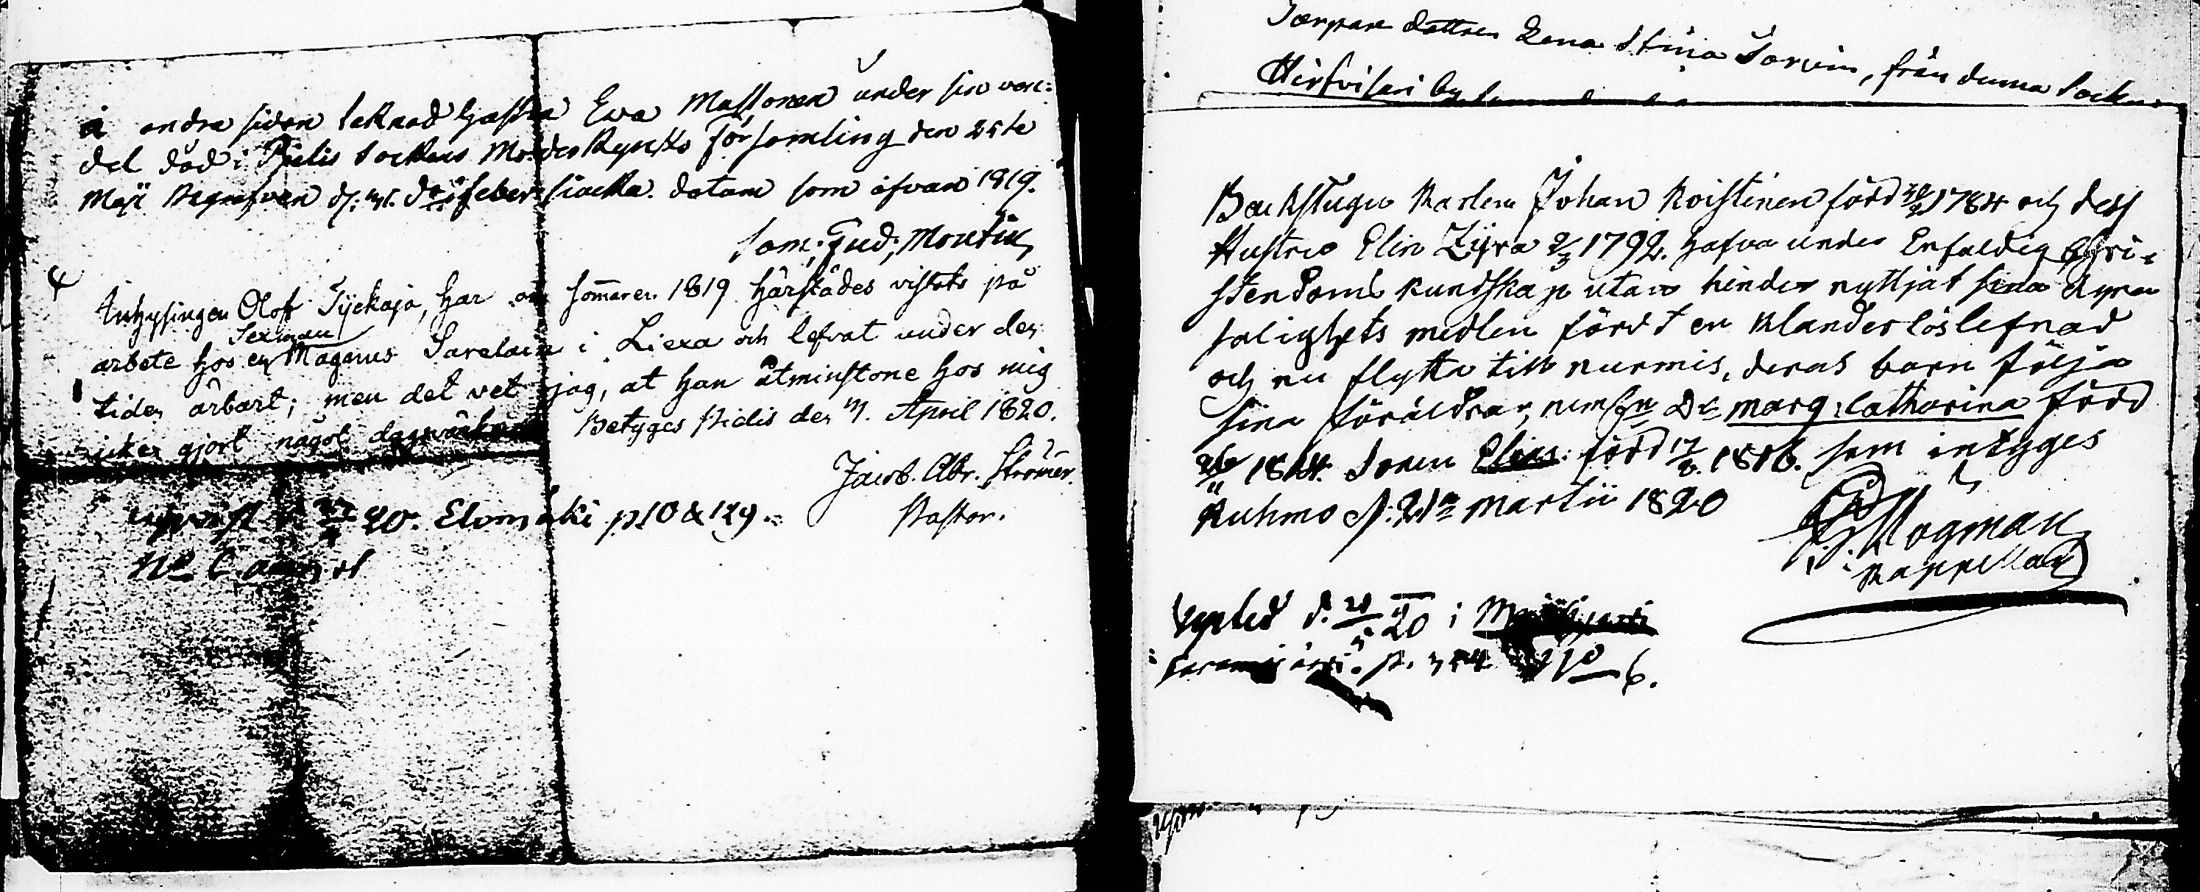 å andra sidan teknad Hustru Ewa Massonen under sin van:
del död i Pielis Sockens Moder Kyrcko församling den 25te
Maji Begrafven d: 31. dito i feber siucka. datum som ofvan 1819.
Sam: Gud: Montin
Inhysingen Olof Tyckäjä, har om sommaren 1819 härstädes vistats på
Sexman
arbete hos en Magnus Sarelain i Liexa och lefvat under den
tiden ärbart; men det vet jag, at han åtminstone hos mig
icke gjort något dagsvärke
Betyges Pielis den 3. April 1820.
Jacob. Abr. Strömer.
Pastor.
20. Elomäki p 10 & 129.
No 6
Torpare dottren Lena Stina Sorvin, från denna Sockn
Hirfvisari by
Backstugu Karlen Johan Koistinen född 1784 och dess
Hustru Elin Zyra 1792. hafva under Enfaldig Chri-
stendoms kundskap utan hinder nyttjat sina dyra
salighets medlen fördt en klanderlös lefnad
och nu flytta till Nurmis, deras barn följa
sina föräldrar, Dr. Marg: Catharina född
26/11 1814. Sonen Elias född 17/8 1816. som intyges
Kuhmo d: 21 Martii 1820
Hogman
Kappellan
d. 20 i
p. 354 No 6.